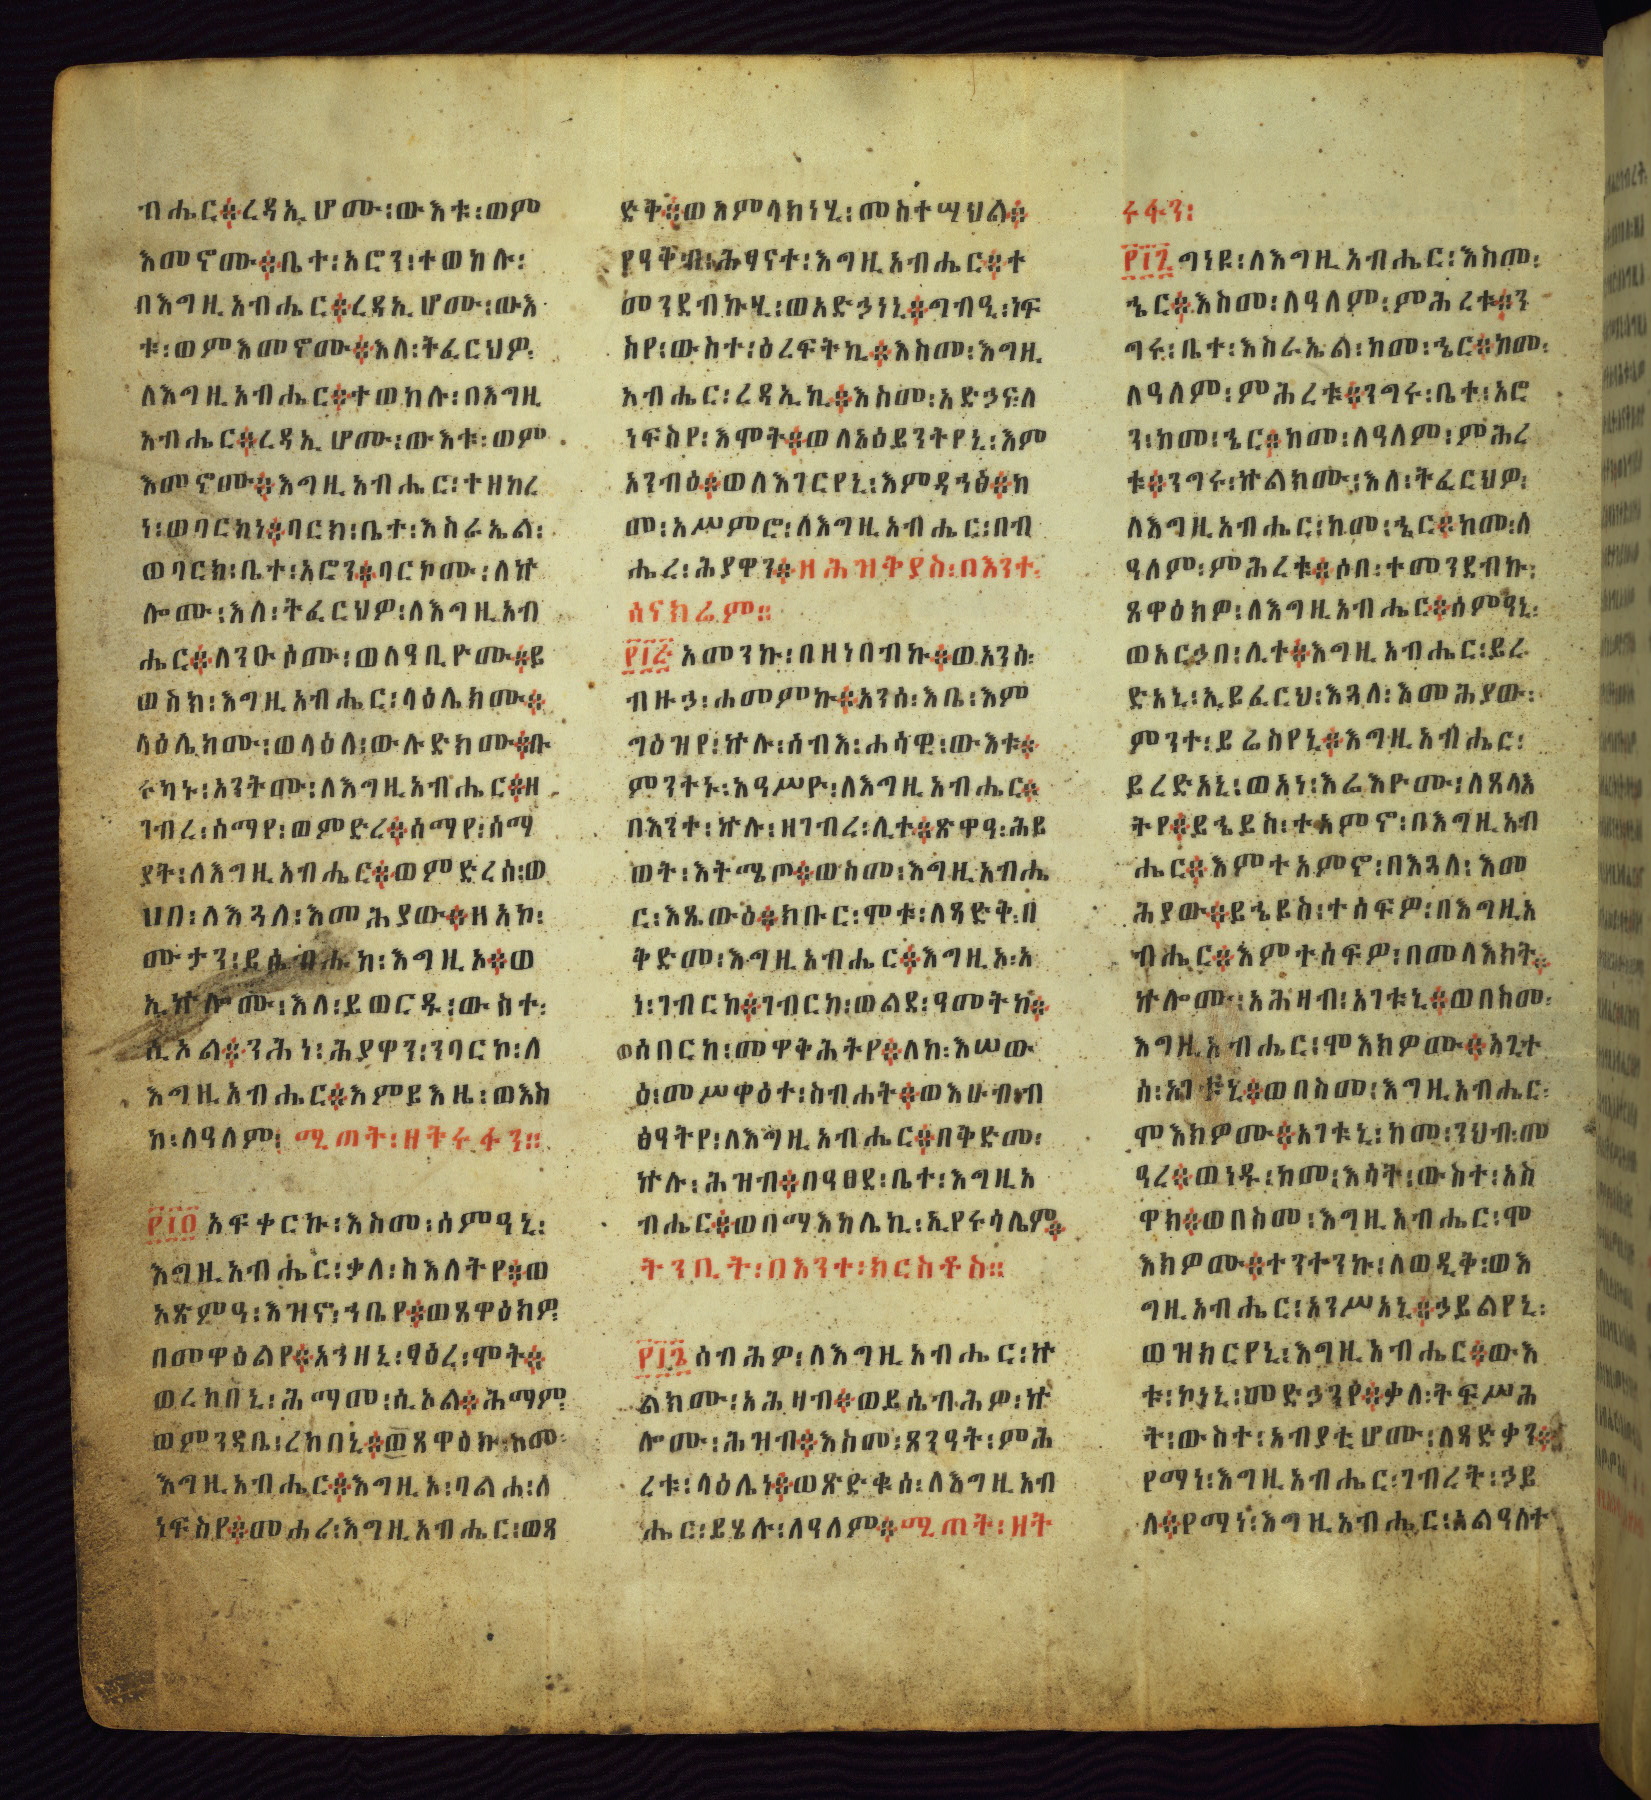 ብሔር፨ረዳኢሆሙ፡ውእቱ፡ወም
እመኖሙ፨ቤተ፡አሮን፡ተወከሉ፡
በእግዚአብሔር፨ረዳኢሆሙ፡ውእ
ቱ፡ወምእመኖሙ፨እለ፡ትፈርህዎ፡
ለእግዚአብሔር፨ተወከሉ፡በእግዚ
አብሔር፨ረዳኢሆሙ፡ውእቱ፡ወም
እመኖሙ፨እግዚአብሔር፡ተዘከረ
ነ፡ወባርከነ፨ባርከ፡ቤተ፡እስራኤል፡
ወባርከ፡ቤተ፡አሮን፨ባርኮሙ፡ለኵ
ሎሙ፡እለ፡ትፈርህዎ፡ለእግዚአብ
ሔር፨ለንዑሶሙ፡ወለዓቢዮሙ፨ይ
ወስክ፡እግዚአብሔር፡ላዕሌክሙ፨
ላዕሌክሙ፡ወላዕለ፡ውሉድክሙ፨ቡ
ሩካኑ፡አንትሙ፡ለእግዚአብሔር፨ዘ
ገብረ፡ሰማየ፡ወምድረ፨ሰማየ፡ሰማ
ያት፡ለእግዚአብሔር፨ወምድረሰ፡ወ
ሀበ፡ለእጓለ፡እመሕያው፨ዘአኮ፡
ሙታን፡ይሴብሑከ፡እግዚኦ፨ወ
ኢኵሎሙ፡እለ፡ይወርዱ፡ውስተ፡
ሲኦል፨ንሕነ፡ሕያዋን፡ንባርኮ፡ለ
እግዚአብሔር፨እምይእዜ፡ወእስ
ከ፡ለዓለም፡ ሚጠት፡ዘትሩፋን።
፻፲፬ አፍቀርኩ፡እስመ፡ሰምዓኒ፡
እግዚአብሔር፡ቃለ፡ስእለትየ፨ወ
አጽምዓ፡እዝኖ፡ኀቤየ፨ወጸዋዕክዎ
በመዋዕልየ፨አኀዘኒ፡ፃዕረ፡ሞት፨
ወረከበኒ፡ሕማመ፡ሲኦል፨ሕማም፡
ወምንዳቤ፡ረከበኒ፨ወጸዋዕኩ፡ስመ፡
እግዚአብሔር፨እግዚኦ፡ባልሐ፡ለ
ነፍስየ፨መሐሪ፡እግዚአብሔር፡ወጻ
ድቅ፨ወአምላክነሂ፡መስተሣህል፨
የዓቅብ፡ሕፃናተ፡እግዚአብሔር፨ተ
መንደብኩሂ፡ወአድኃነኒ፨ግብዒ፡ነፍ
ስየ፡ውስተ፡ዕረፍትኪ፨እስመ፡እግዚ
አብሔር፡ረዳኢኪ፨እስመ፡አድኃና፡ለ
ነፍስየ፡እሞት፨ወለአዕይንትየኒ፡እም
አንብዕ፨ወለእገርየኒ፡እምዳኅፅ፨ከ
መ፡አሥምሮ፡ለእግዚአብሔር፡በብ
ሔረ፡ሕያዋን፨ዘሕዝቅያስ፡በእንተ፡
ሰናክሬም።
፻፲፭ አመንኩ፡በዘነበብኩ፨ወአንሰ፡
ብዙኃ፡ሐመምኩ፨አንሰ፡እቤ፡እም
ግዕዝየ፡ኵሉ፡ሰብእ፡ሐሳዊ፡ውእቱ፨
ምንተኑ፡አዓሥዮ፡ለእግዚአብሔር፨
በእንተ፡ኵሉ፡ዘገብረ፡ሊተ፨ጽዋዓ፡ሕይ
ወት፡እትሜጦ፨ወስመ፡እግዚአብሔ
ር፡እጼውዕ፨ክቡር፡ሞቱ፡ለጻድቅ፡በ
ቅድመ፡እግዚአብሔር፨እግዚኦ፡አ
ነ፡ገብርከ፨ገብርከ፡ወልደ፡ዓመትከ፨
ወሰበርከ፡መዋቅሕትየ፨ለከ፡እሠው
ዕ፡መሥዋዕተ፡ስብሐት፨ወእሁብ፡ብ
ፅዓትየ፡ለእግዚአብሔር፨በቅድመ፡
ኵሉ፡ሕዝብ፨በዓፀደ፡ቤተ፡እግዚአ
ብሔር፨ወበማእከሌኪ፡ኢየሩሳሌም፨
ትንቢት፡በእንተ፡ክርስቶስ።
፻፲፮ ሰብሕዎ፡ለእግዚአብሔር፡ኵ
ልክሙ፡አሕዛብ፨ወይሴብሕዎ፡ኵ
ሎሙ፡ሕዝብ፨እስመ፡ጸንዓት፡ምሕ
ረቱ፡ላዕሌነ፨ወጽድቁሰ፡ለእግዚአብ
ሔር፡ይሄሉ፡ለዓለም፨ሚጠት፡ዘት
ሩፋን፡
፻፲፯ ግነዩ፡ለእግዚአብሔር፡እስመ፡
ኄር፨እስመ፡ለዓለም፡ምሕረቱ፨ን
ግሩ፡ቤተ፡እስራኤል፡ከመ፡ኄር፨ከመ፡
ለዓለም፡ምሕረቱ፨ንግሩ፡ቤተ፡አሮ
ን፡ከመ፡ኄር፨ከመ፡ለዓለም፡ምሕረ
ቱ፨ንግሩ፡ኵልክሙ፡እለ፡ትፈርህዎ፡
ለእግዚአብሔር፡ከመ፡ኄር፨ከመ፡ለ
ዓለም፡ምሕረቱ፨ሶበ፡ተመንደብኩ፡
ጸዋዕክዎ፡ለእግዚአብሔር፨ሰምዓኒ፡
ወአርኃበ፡ሊተ፨እግዚአብሔር፡ይረ
ድአኒ፡ኢይፈርህ፡እጓለ፡እመሕያው፡
ምንተ፡ይሬስየኒ፨እግዚአብሔር፡
ይረድአኒ፡ወአነ፡እሬእዮሙ፡ለጸላእ
ትየ፨ይኄይስ፡ተአምኖ፡በእግዚአብ
ሔር፨እምተአምኖ፡በእጓለ፡እመ
ሕያው፨ይኄይስ፡ተሰፍዎ፡በእግዚአ
ብሔር፨እምተሰፍዎ፡በመላእክት፨
ኵሎሙ፡አሕዛብ፡አገቱኒ፨ወበስመ፡
እግዚአብሔር፡ሞእክዎሙ፨አጊተ
ሰ፡አገቱኒ፨ወበስመ፡እግዚአብሔር፡
ሞእክዎሙ፨አገቱኒ፡ከመ፡ንህብ፡መ
ዓረ፨ወነዱ፡ከመ፡እሳት፡ውስተ፡አስ
ዋክ፨ወበስመ፡እግዚአብሔር፡ሞ
እክዎሙ፨ተንተንኩ፡ለወዲቅ፡ወእ
ግዚአብሔር፡አንሥአኒ፨ኃይልየኒ፡
ወዝክርየኒ፡እግዚአብሔር፨ውእ
ቱ፡ኮነኒ፡መድኃንየ፨ቃለ፡ትፍሥሕ
ት፡ውስተ፡አብያቲሆሙ፡ለጻድቃን፨
የማነ፡እግዚአብሔር፡ገብረት፡ኃይ
ለ፨የማነ፡እግዚአብሔር፡አልዓለተ